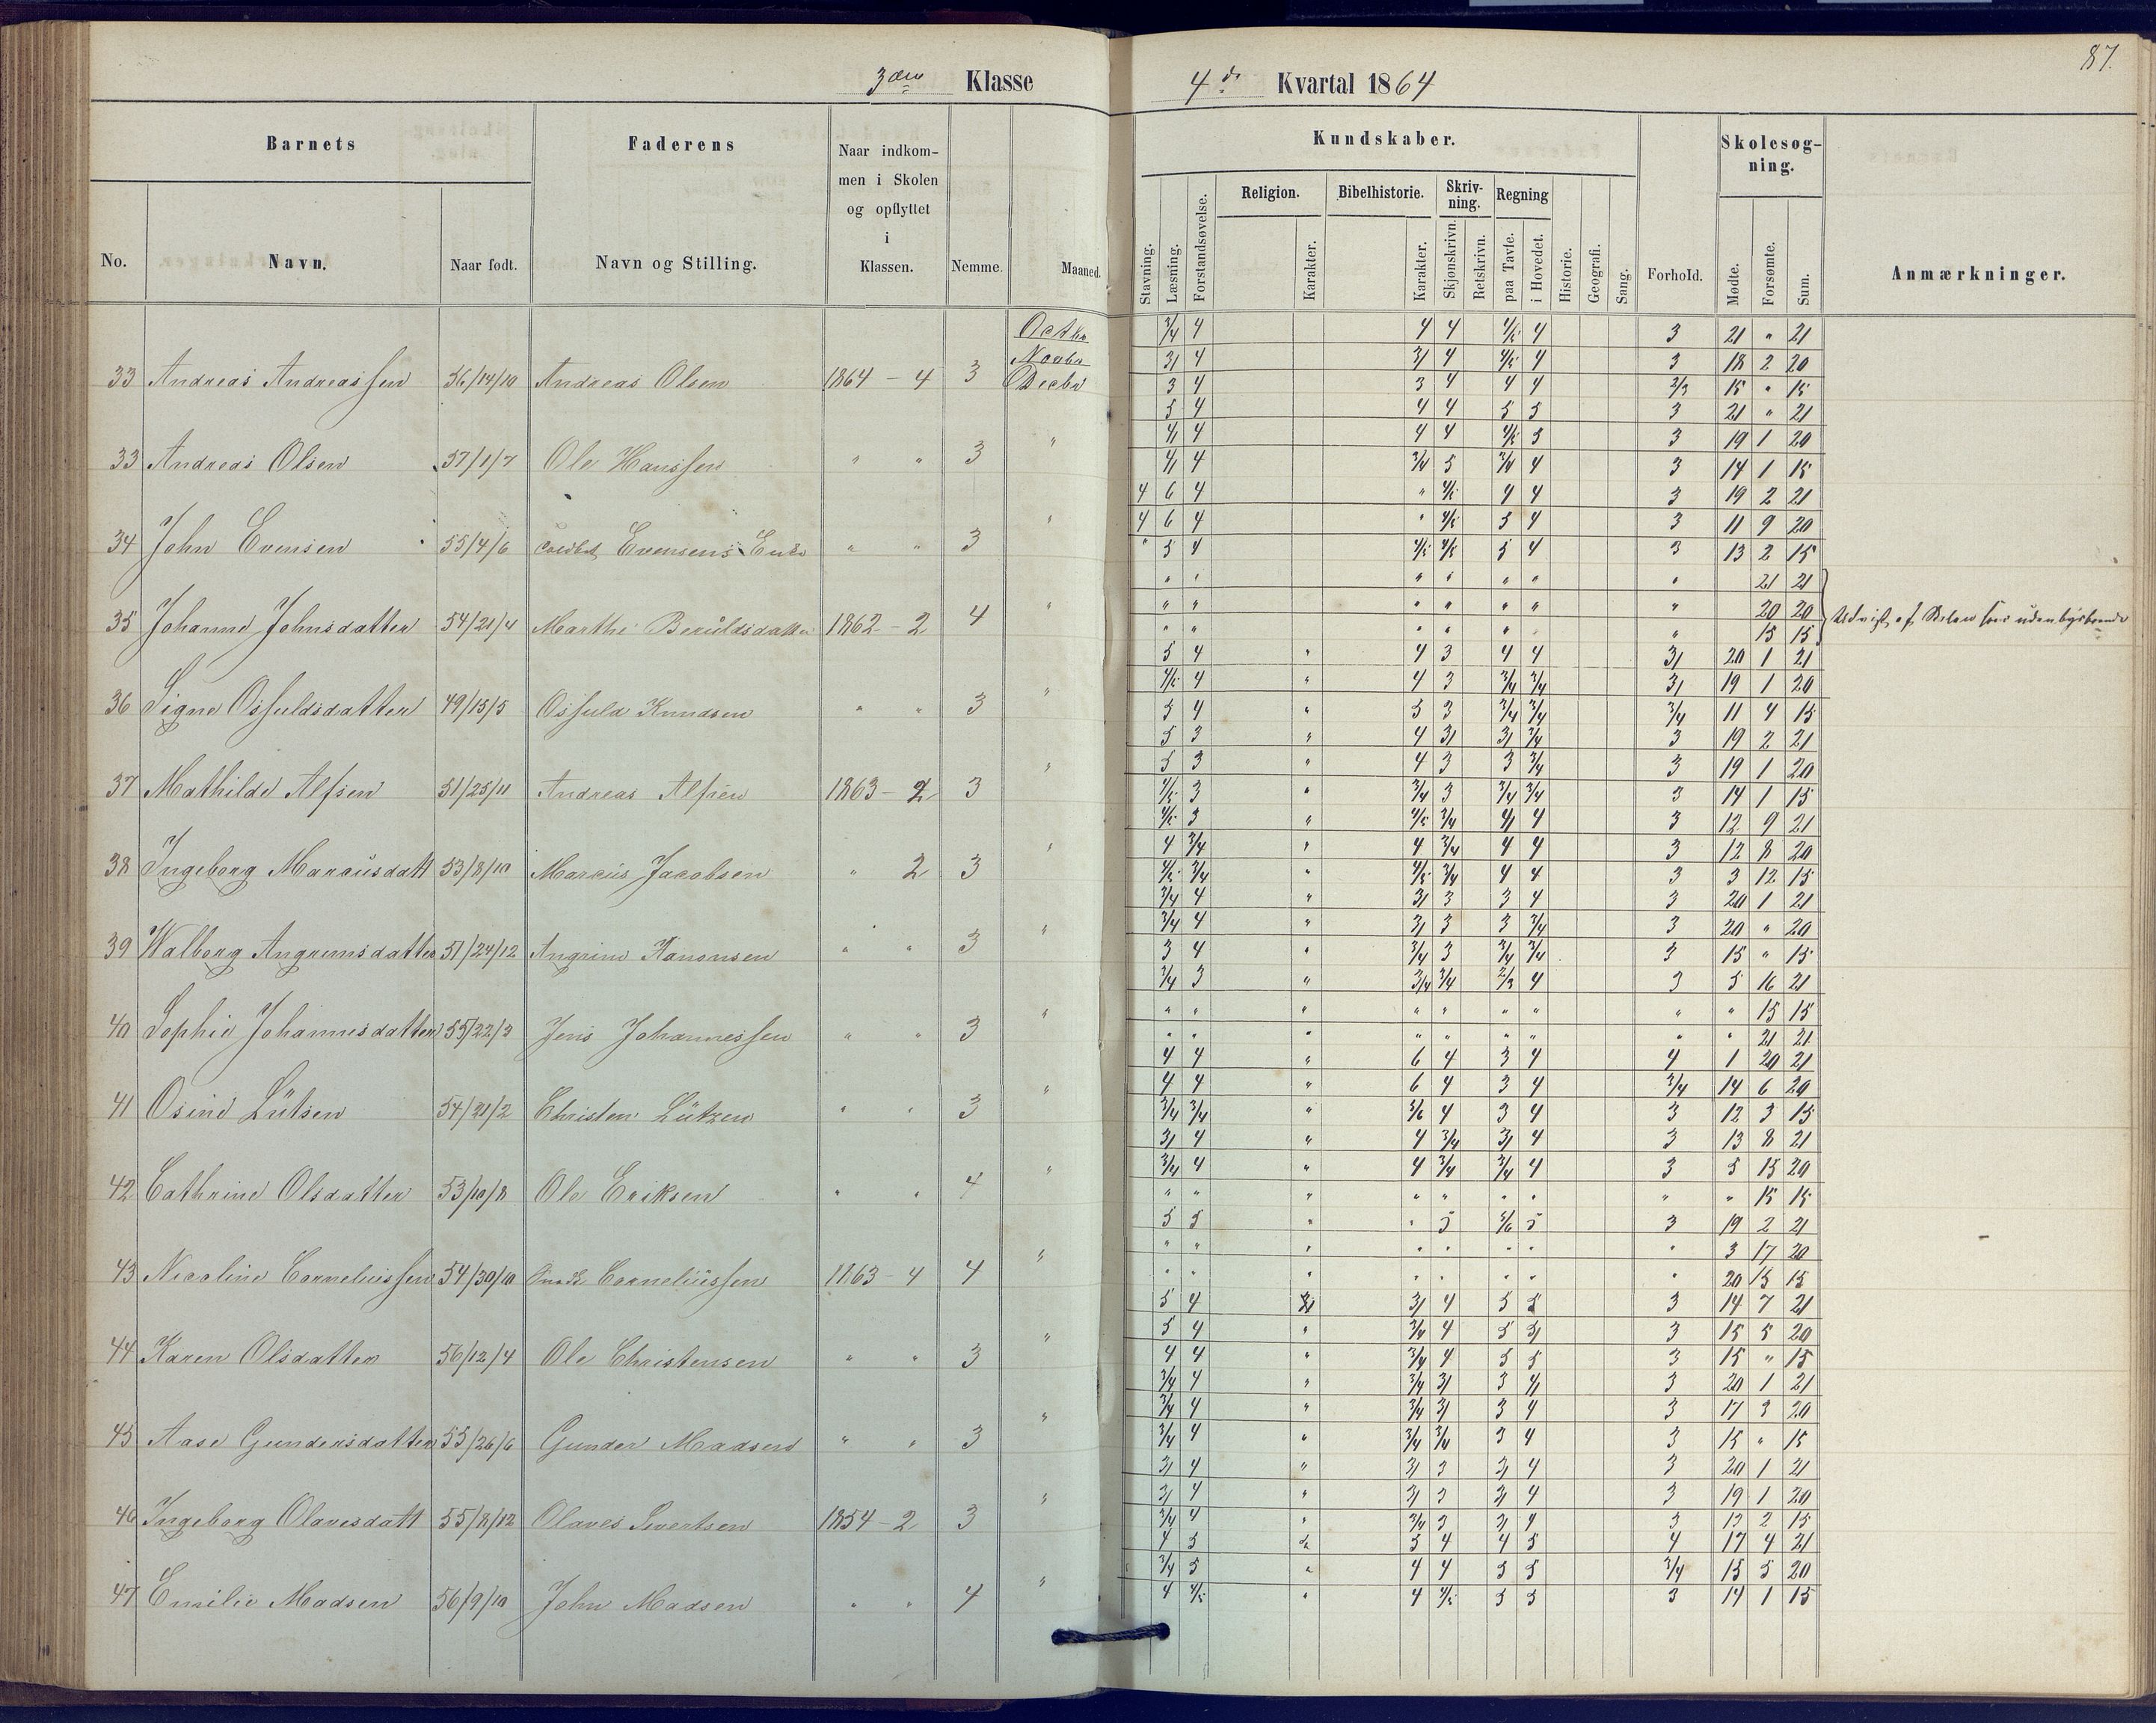 87.
3die Klasse
4de Kvartal 1864
Barnets
Faderens
Naar indkommen i Skolen og opflyttet i Klassen.
Nemme.
Maaned.
No.
Navn.
Naar født.
Navn og Stilling.
Kundskaber.
Stavning.
Læsning.
Forstandsøvelse.
Religion.
Karakter.
Bibelhistorie.
Karakter.
Skrivning.
Skjønskrivn.
Retskrivn.
Regning
paa Tavle.
i Hovedet.
Historie.
Geografi.
Sang.
Forhold.
Skolesøgning.
Mødte.
Forsømte.
Sum.
Anmærkninger.
33 Andreas Andreassen 56/14/10 Andreas Olsen 1864 - 4 3
3/4 4 4 4 4/5 4 3 21 " 21
3/ 4 3/ 4 4/5 4 3 18 2 20
3 4 3 4 4 4 2/3 15 " 15
33 Andreas Olsen 57/1/7 Ole Hanssen " " 3 "
5 4 4 4 5 5 3 21 " 21
4/ 4 4 4 4/5 5 3 19 1 20
4/ 4 3/4 5 3/4 4 3 14 1 15
34 John Evensen 55/4/6 Evensens Enke " " 3 "
4 6 4 " 4/5 4 4 3 19 2 21
4 6 4 " 4/5 5 4 3 11 9 20
" 5 4 4/5 4/5 5 4 3 13 2 15
35 Johanne Johnsdatter 54/21/4 Marthe Beruldsdatter 1862 - 2 4 "
" " " " " " " 21 21
" " " " " " " 20 20
" " " " " " 15 15
36 Signe Osfuldsdatter 49/15/5 Osfuld Knudsen " " 3 "
5 4 " 4 3 4 4 3/ 20 1 21
4/5 4 " 4 3 3/4 3/4 3/ 19 1 20
5 4 " 5 3 3/4 3/4 3/4 11 4 15
37 Mathilde Alfsen 51/25/11 Andreas Alfsen 1863 - 2 3 "
5 3 " 4 3/ 3/ 3/4 3 19 2 21
5 3 " 4 3 3 3/4 3 19 1 20
4/5 3 " 3/4 3 3/4 3/4 3 14 1 15
38 Ingeborg Marcusdatt 53/8/10 Marcus Jacobsen " 2 3 "
4/5 3 " 4/5 3/4 4/ 4 3 12 9 21
4 3/4 " 4 3/4 4 4 3 12 8 20
4/5 3/4 " 4/5 3/4 4 4 3 3 12 15
39 Walborg Angrimsdatter 51/24/12 Angrim " " 3 "
3/4 4 " 3/ 3 3 4 3 20 1 21
3/4 4 " 3/ 3 3 3/4 3 20 " 20
3 4 " 3/4 3 3/4 3/4 3 15 " 15
40 Sophie Johannesdatter 55/22/3 Jens Johannessen " " 3 "
3/4 3 " 3/4 3/4 2/3 4 3 5 16 21
" " " " " " " " " 15 15
" " " " " " " " " 21 21
41 Osine Lütsen 54/21/2 Christen Lützen " " 3 "
4 4 " 6 4 3 4 4 1 20 21
4 4 " 6 4 3 4 3/4 14 6 20
3/4 3/4 " 5/6 4 3 4 3 12 3 15
42 Cathrine Olsdatter 53/10/8 Ole Eriksen " " 4 "
3/ 4 " 4 3/4 3/ 4 3 13 8 21
3/4 4 " 4 3/4 3/4 4 3 5 15 20
" " " " " " " " " 15 15
43 Nicoline Corneliussen 54/30/10 Corneliussen 1863 - 4 4 "
5 5 " " 5 5/6 5 3 19 2 21
" " " " " " " " 3 17 20
" " " " " " " " 20 15 15
44 Karen Olsdatter 56/12/4 Ole Christensen " " 3 "
5 4 3/ 4 5 5 3 14 7 21
5 4 " 3/4 4 5 5/ 3 15 5 20
4 4 " 3/4 4 5 5 3 15 " 15
45 Aase Gundersdatter 55/26/6 Gunder Madsen " " 3 "
3/4 4 " 3/4 3/ 3 4/ 3 20 1 21
3/4 4 " 3/4 3/ 3 4 3 17 3 20
3/4 4 " 3/4 3/4 3 4 3 15 " 15
46 Ingeborg Olavesdatt 55/8/12 Olaves Sivertsen 1854 - 2 3 "
3/ 4 " 3/ 3 3/ 4 3 20 1 21
3/ 4 " 3/ 3 3/ 4 3 19 1 20
3/4 4 " 3/4 3 3/ 4 3 13 2 15
47 Emilie Madsen 56/9/10 John Madsen " " 4 "
4 5 5 4 4 5 4 17 4 21
3/4 5 " 4 4 5 5 3/4 15 5 20
4 4/5 " 4 4/5 5 5 3 14 1 15
Octbr
Novbr
Decbr
Udvist af Skolen som udenbysboende